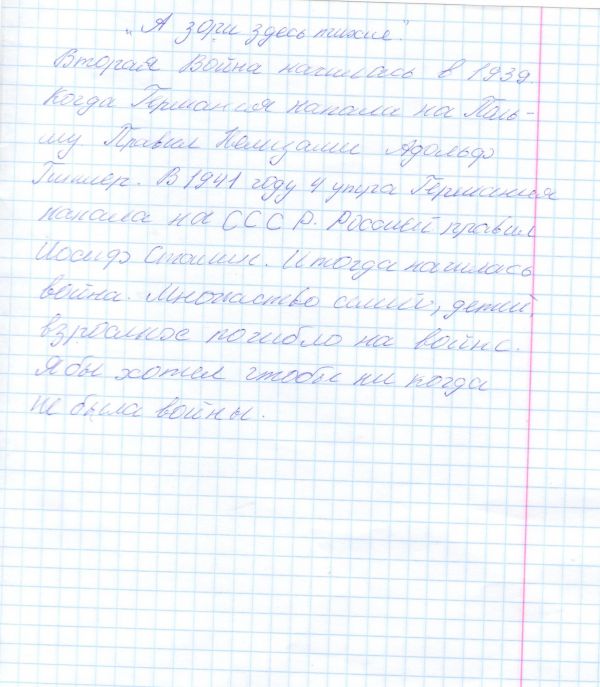 „А зори здесь тихие".
Вторая Война началась в 1939.
Когда Германия напала на Поль-
шу Правил Немцами Адольф
Гитлер. В 1941 году 4 утра Германия
напала на СССР. Россией правил
Иосиф Сталин. И тогда началась
война. Множество семей, детей,
взрослых погибло на войне.
Я бы хотел чтобы ни когда
не была войны.